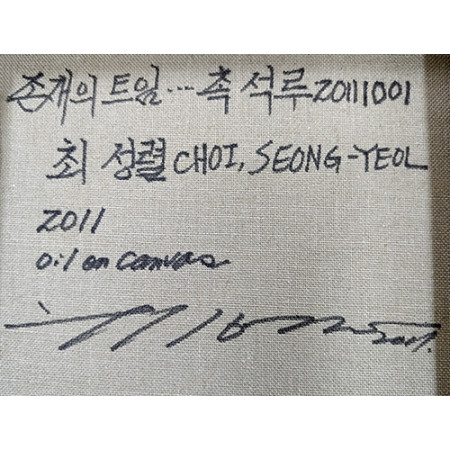 존재의 트임... 촉석루 20111001
최 성렬 CHOI, SEONG-YEOL
2011
oil on canvas
2011.